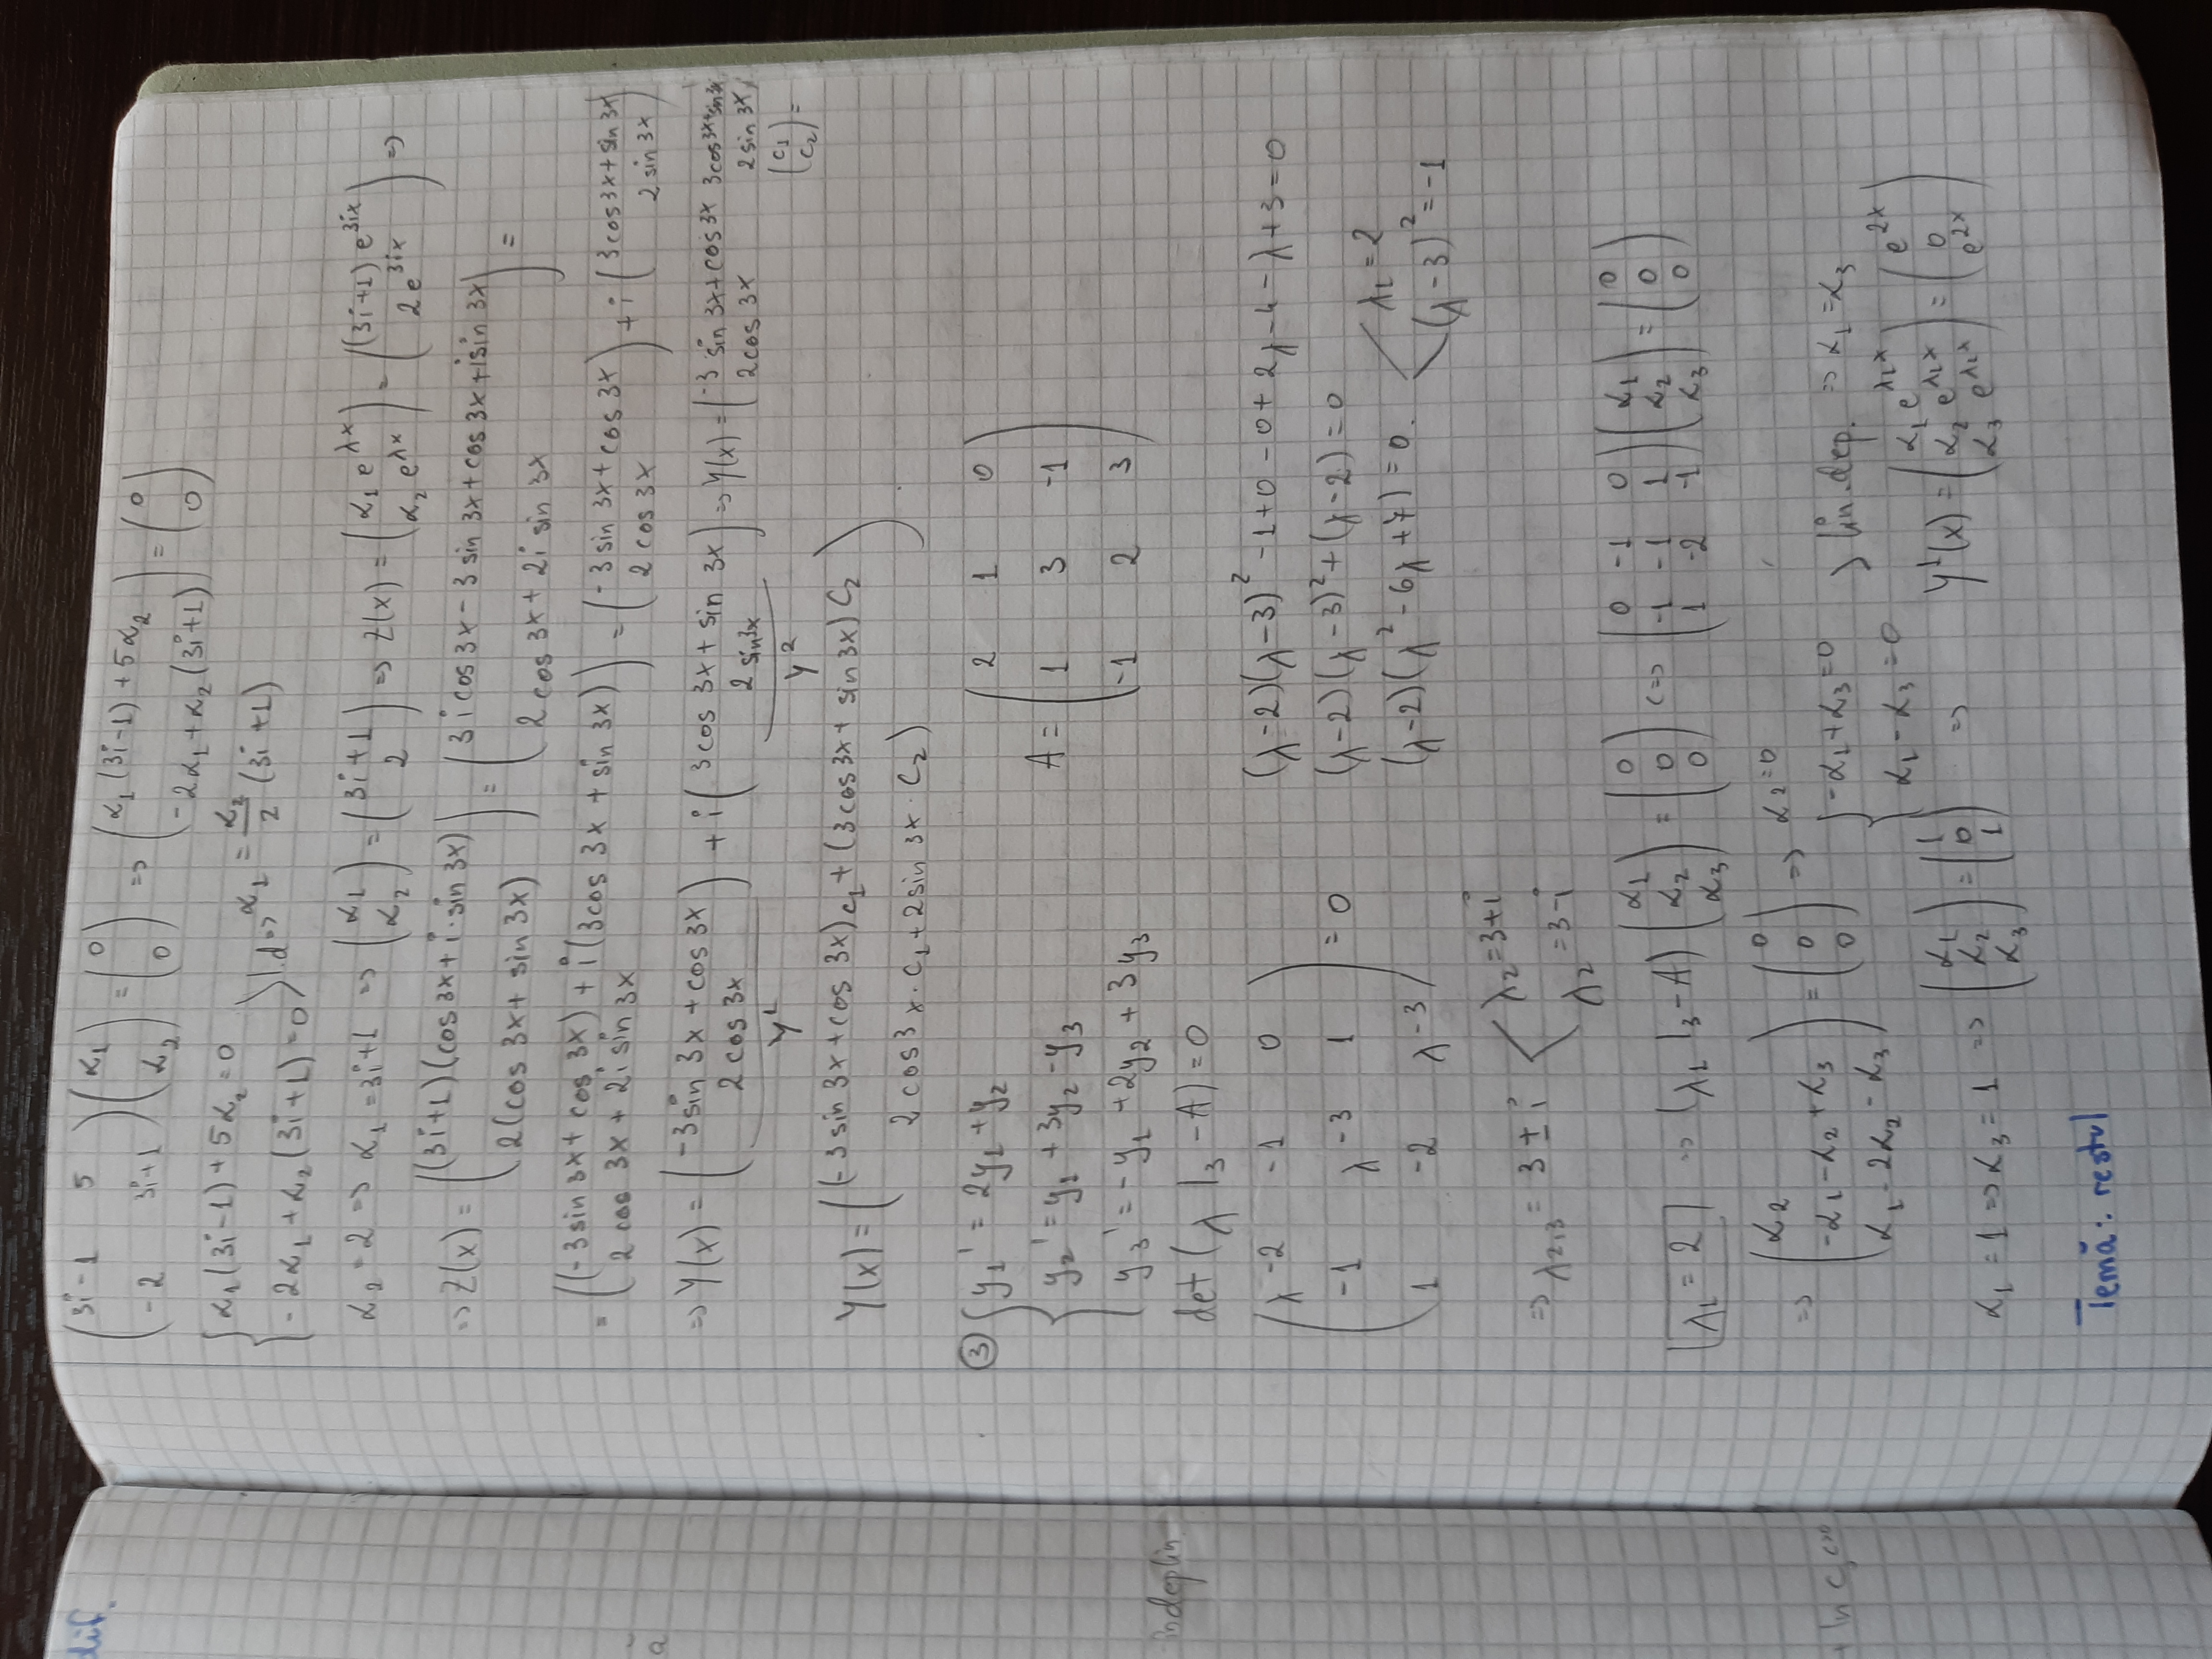 dif.
(3i-1 5 ; -2 3i+1)(α₁ ; α₂) = (0 ; 0) => (α₁(3i-1)+5α₂ ; -2α₁+α₂(3i+1)) = (0 ; 0)
{α₁(3i-1)+5α₂=0 ; -2α₁+α₂(3i+1)=0} l.d => α₁ = α₂/2 (3i+1)
α₂=2 => α₁=3i+1 => (α₁ ; α₂) = (3i+1 ; 2) => Z(x) = (α₁e^{λx} ; α₂e^{λx}) = ((3i+1)e^{3ix} ; 2e^{3ix}) =>
=> Z(x) = ((3i+1)(cos 3x+i·sin 3x) ; 2(cos 3x+ sin 3x)) = (3i cos 3x - 3 sin 3x + cos 3x + i sin 3x ; 2 cos 3x + 2i sin 3x) =
= ((-3 sin 3x + cos 3x) + i(3cos 3x + sin 3x) ; 2 cos 3x + 2i sin 3x) = (-3 sin 3x + cos 3x ; 2 cos 3x) + i(3cos3x + sin 3x ; 2 sin 3x)
=> Y(x) = (-3 sin 3x + cos 3x ; 2 cos 3x) + i(3cos 3x + sin 3x ; 2 sin 3x) => Y(x) = (-3 sin 3x+cos 3x 3cos3x+sin 3x ; 2cos 3x 2sin 3x)
Y¹ Y² (c₁ ; c₂) =
Y(x) = ((-3 sin 3x + cos 3x)c₁ + (3cos3x + sin 3x)C₂ ; 2 cos3x·c₁+2sin 3x·C₂)
③ {y₁' = 2y₁+y₂ ; y₂' = y₁+3y₂-y₃ ; y₃' = -y₁+2y₂+3y₃ A = (2 1 0 ; 1 3 -1 ; -1 2 3)
îndeplin.
det(λI₃-A)=0
(λ-2 -1 0 ; -1 λ-3 1 ; 1 -2 λ-3) = 0
(λ-2)(λ-3)²-1+0-0+2λ-4-λ+3=0
(λ-2)(λ-3)²+(λ-2)=0
(λ-2)(λ²-6λ+7)=0. λ₁=2 ; (λ-3)²=-1
=> λ₂,₃ = 3±i λ₂=3+i ; λ₂=3-i
λ₁=2 => (λ₁I₃-A)(α₁ ; α₂ ; α₃) = (0 ; 0 ; 0) <=> (0 -1 0 ; -1 -1 1 ; 1 -2 -1)(α₁ ; α₂ ; α₃) = (0 ; 0 ; 0)
=> (α₂ ; -α₁-α₂+α₃ ; α₁-2α₂-α₃) = (0 ; 0 ; 0) => α₂=0 {-α₁+α₃=0 ; α₁-α₃=0} lin.dep. => α₁=α₃
+ ln c,
α₁=1 => α₃=1 => (α₁ ; α₂ ; α₃) = (1 ; 0 ; 1) => Y¹(x) = (α₁e^{λ₁x} ; α₂e^{λ₁x} ; α₃e^{λ₁x}) = (e^{2x} ; 0 ; e^{2x})
Temă: restul